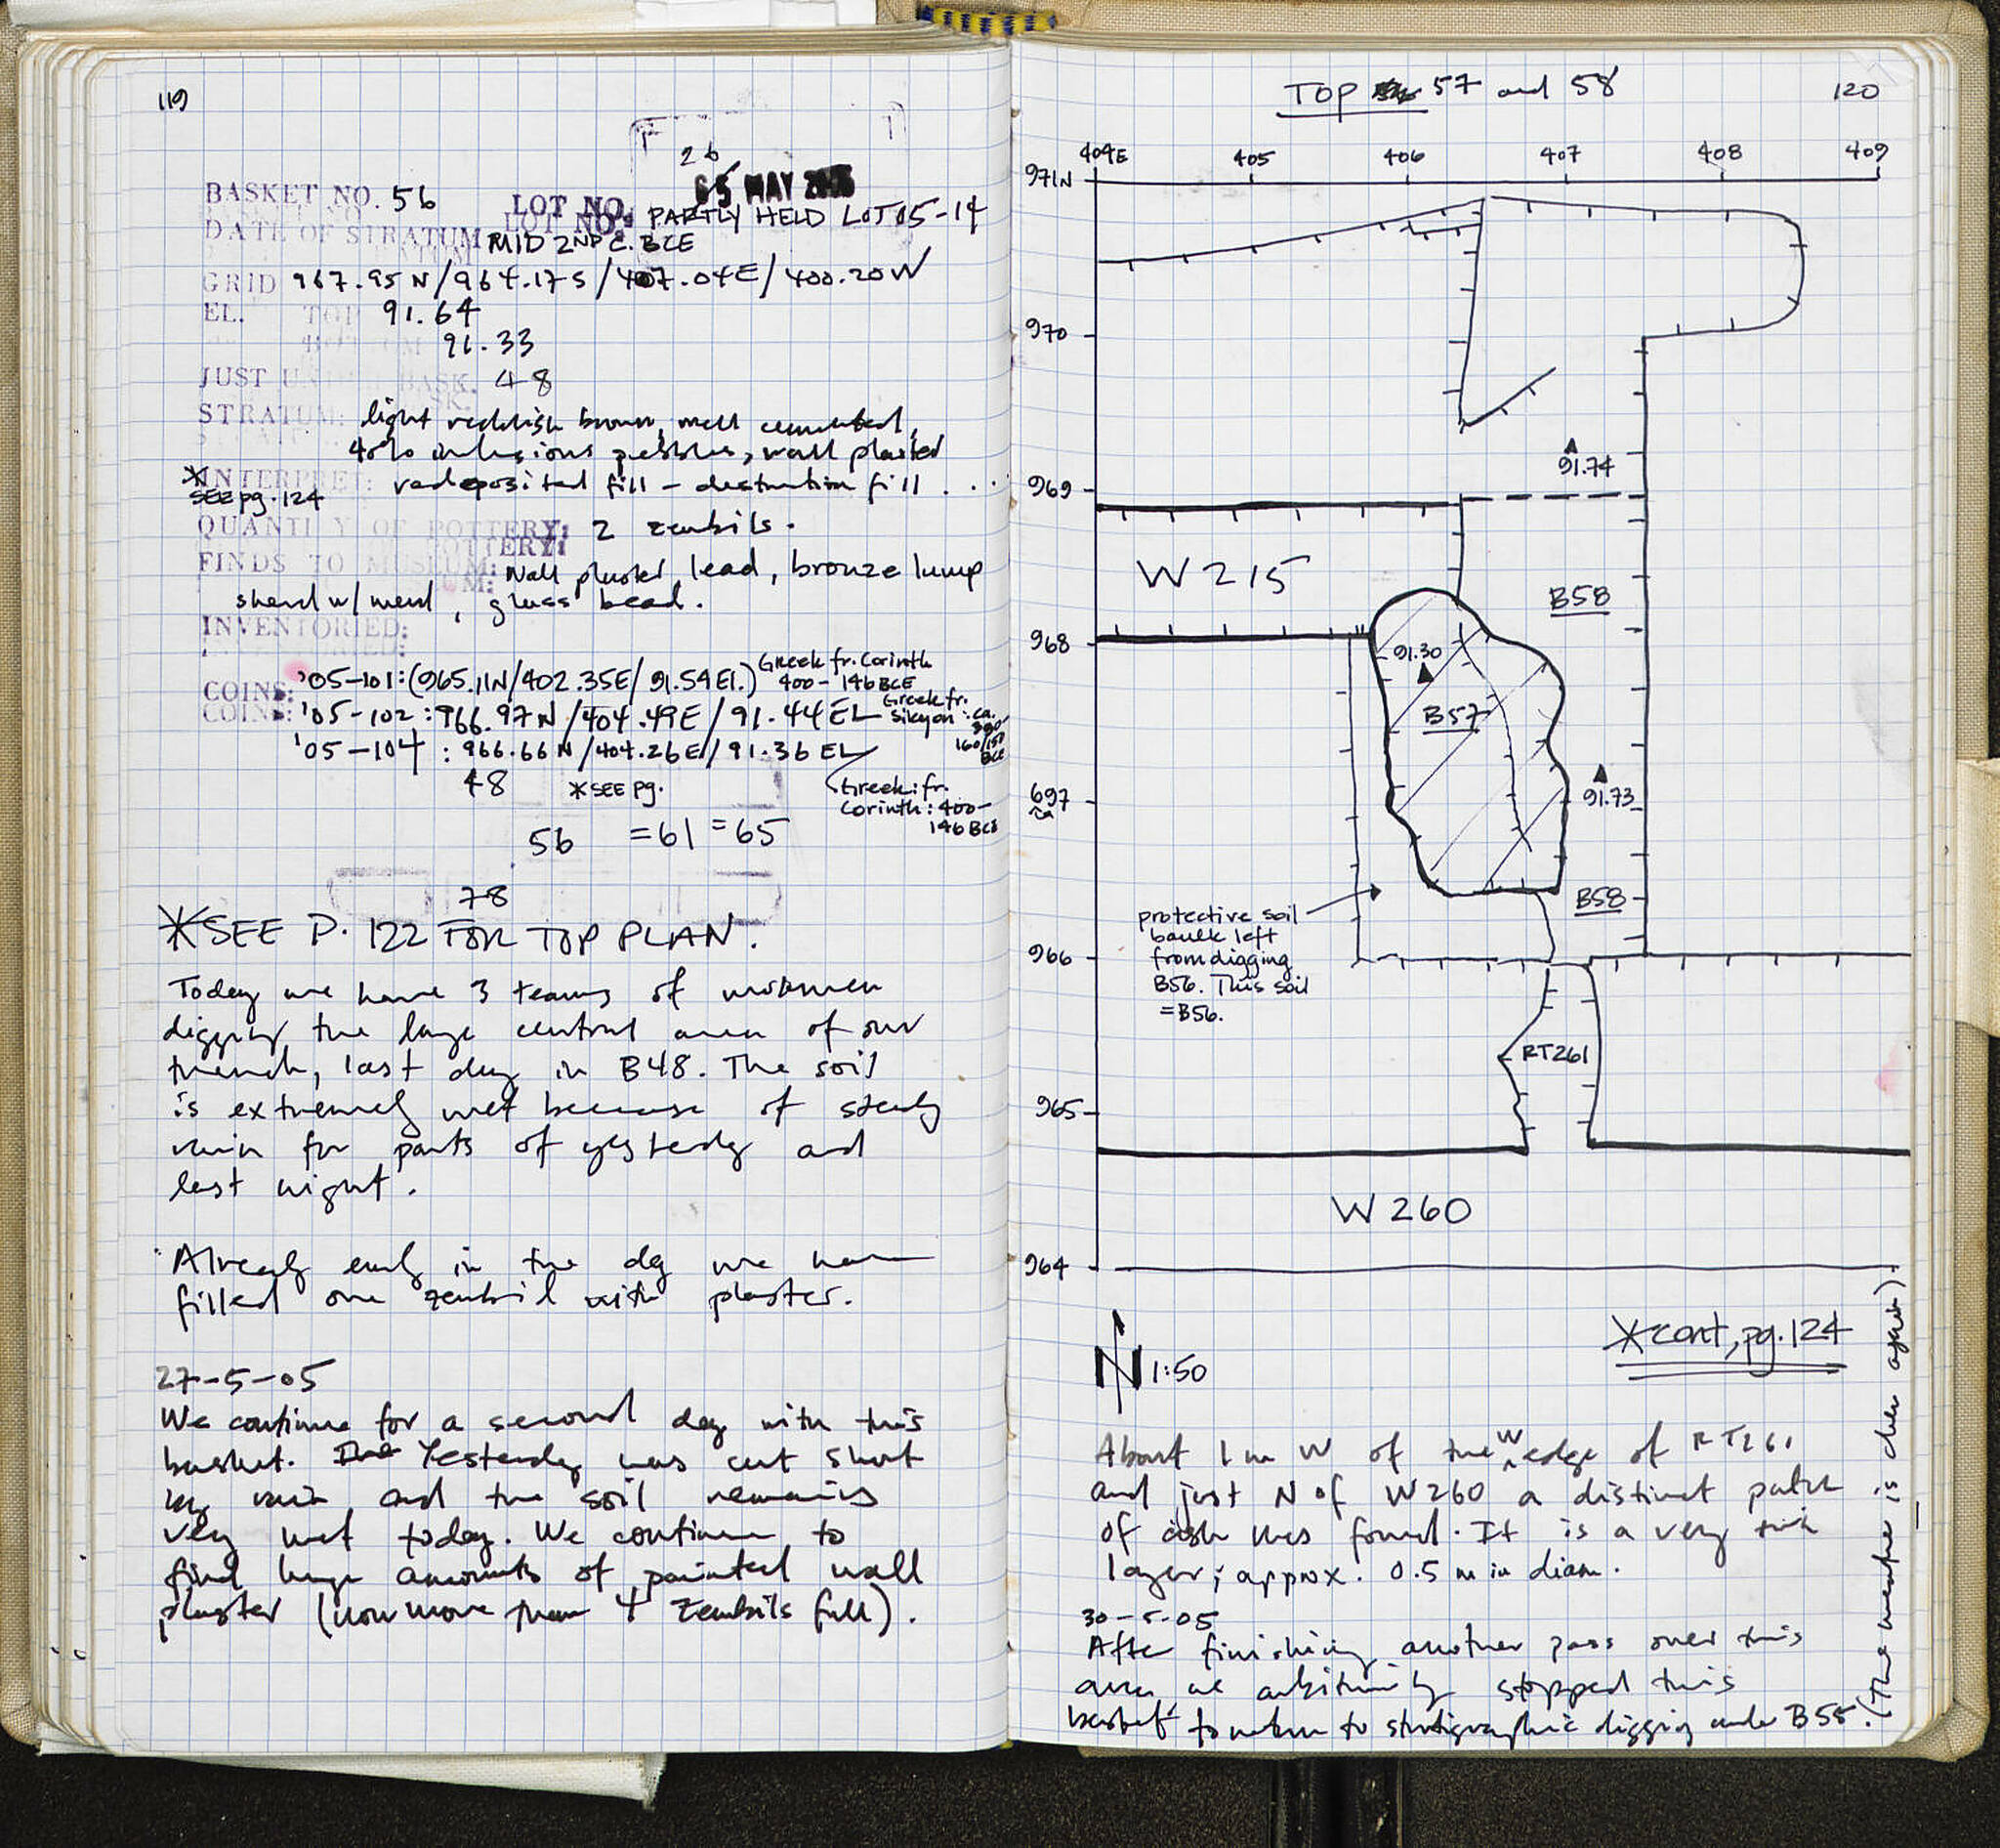 119
26
05 MAY 2005
BASKET NO. 56 LOT NO. PARTLY HELD LOT 05-14
DATE OF STRATUM MID 2ND C. BCE
GRID 967.95 N/964.17 S/407.04E/400.20W
EL. TOP 91.64
BOTTOM 91.33
JUST UNDER BASK. 48
STRATUM: light reddish brown, well cemented,
40% inclusions pebbles, wall plaster
INTERPRET: redeposited fill - destruction fill ...
* SEE pg. 124
QUANTITY OF POTTERY: 2 zembils.
FINDS TO MUSEUM: Wall plaster, lead, bronze lump
sherd w/ mend, glass bead.
INVENTORIED:
COINS: '05-101: (965.11N/402.35E/91.54El.) Greek fr. Corinth
400-146 BCE
'05-102: 966.97N/404.49E/91.44EL Greek fr.
Sikyon: ca.
160/150
BCE
'05-104: 966.66N/404.26E/91.36 EL
Greek: fr.
Corinth: 400-
146 BCE
48 *SEE pg.
56 =61 =65
78
*SEE P. 122 FOR TOP PLAN.
Today we have 3 teams of workmen
digging the large central area of our
trench, last dug in B48. The soil
is extremely wet because of steady
rain for parts of yesterday and
last night.
Already early in the day we have
filled one zembil with plaster.
27-5-05
We continue for a second day with this
basket. The Yesterday was cut short
by rain and the soil remains
very wet today. We continue to
find huge amounts of painted wall
plaster (now more than 4 zembils full).
TOP 57 and 58
120
404E 405 406 407 408 409
971N
970
91.74
969
W215
B58
968
91.30
B57
697
ca
91.73
B58
protective soil
baulk left
from digging
B56. This soil
=B56.
966
RT261
965
W260
964
*cont, pg. 124
N 1:50
About 1 m W of the W edge of RT261
and just N of W260 a distinct patch
of ash was found. It is a very thin
layer; approx. 0.5 m in diam.
30-5-05
After finishing another pass over this
area we arbitrarily stopped this
basket to return to stratigraphic digging under B55.
(The weather is clear again)